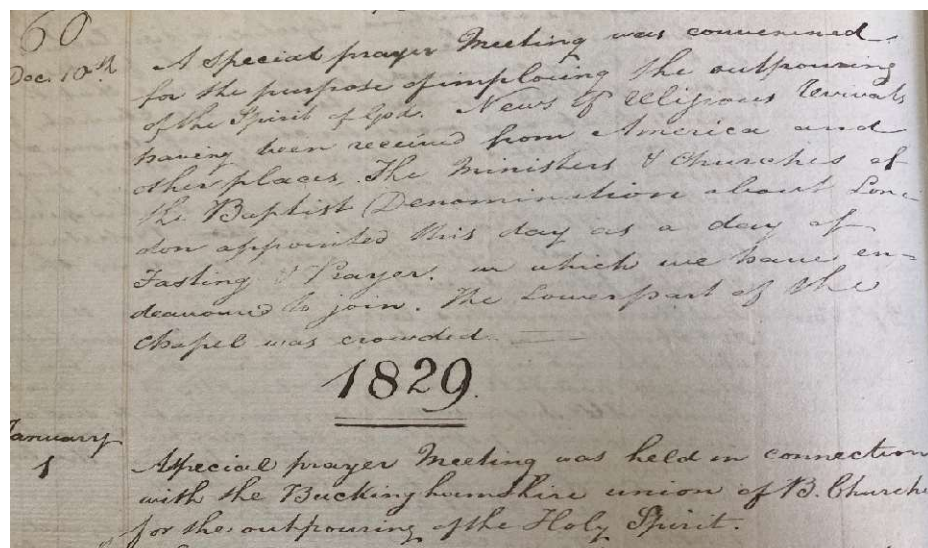 60
Dec. 10th A Special prayer Meeting was convenened
for the purpose of imploring the outpouring
of the Spirit of God. News of Religious Revivals
having been received from America and
other places. The Ministers & Churches of
the Baptist Denomination about Lon-
don appointed this day as a day of
Fasting & Prayer. in which we have en=
deavoured to join. The Lower part of the
Chapel was crowded
1829.
January
1
A special prayer Meeting was held in connection
with the Buckinghamshire union of B. Churche
for the outpouring of the Holy Spirit.